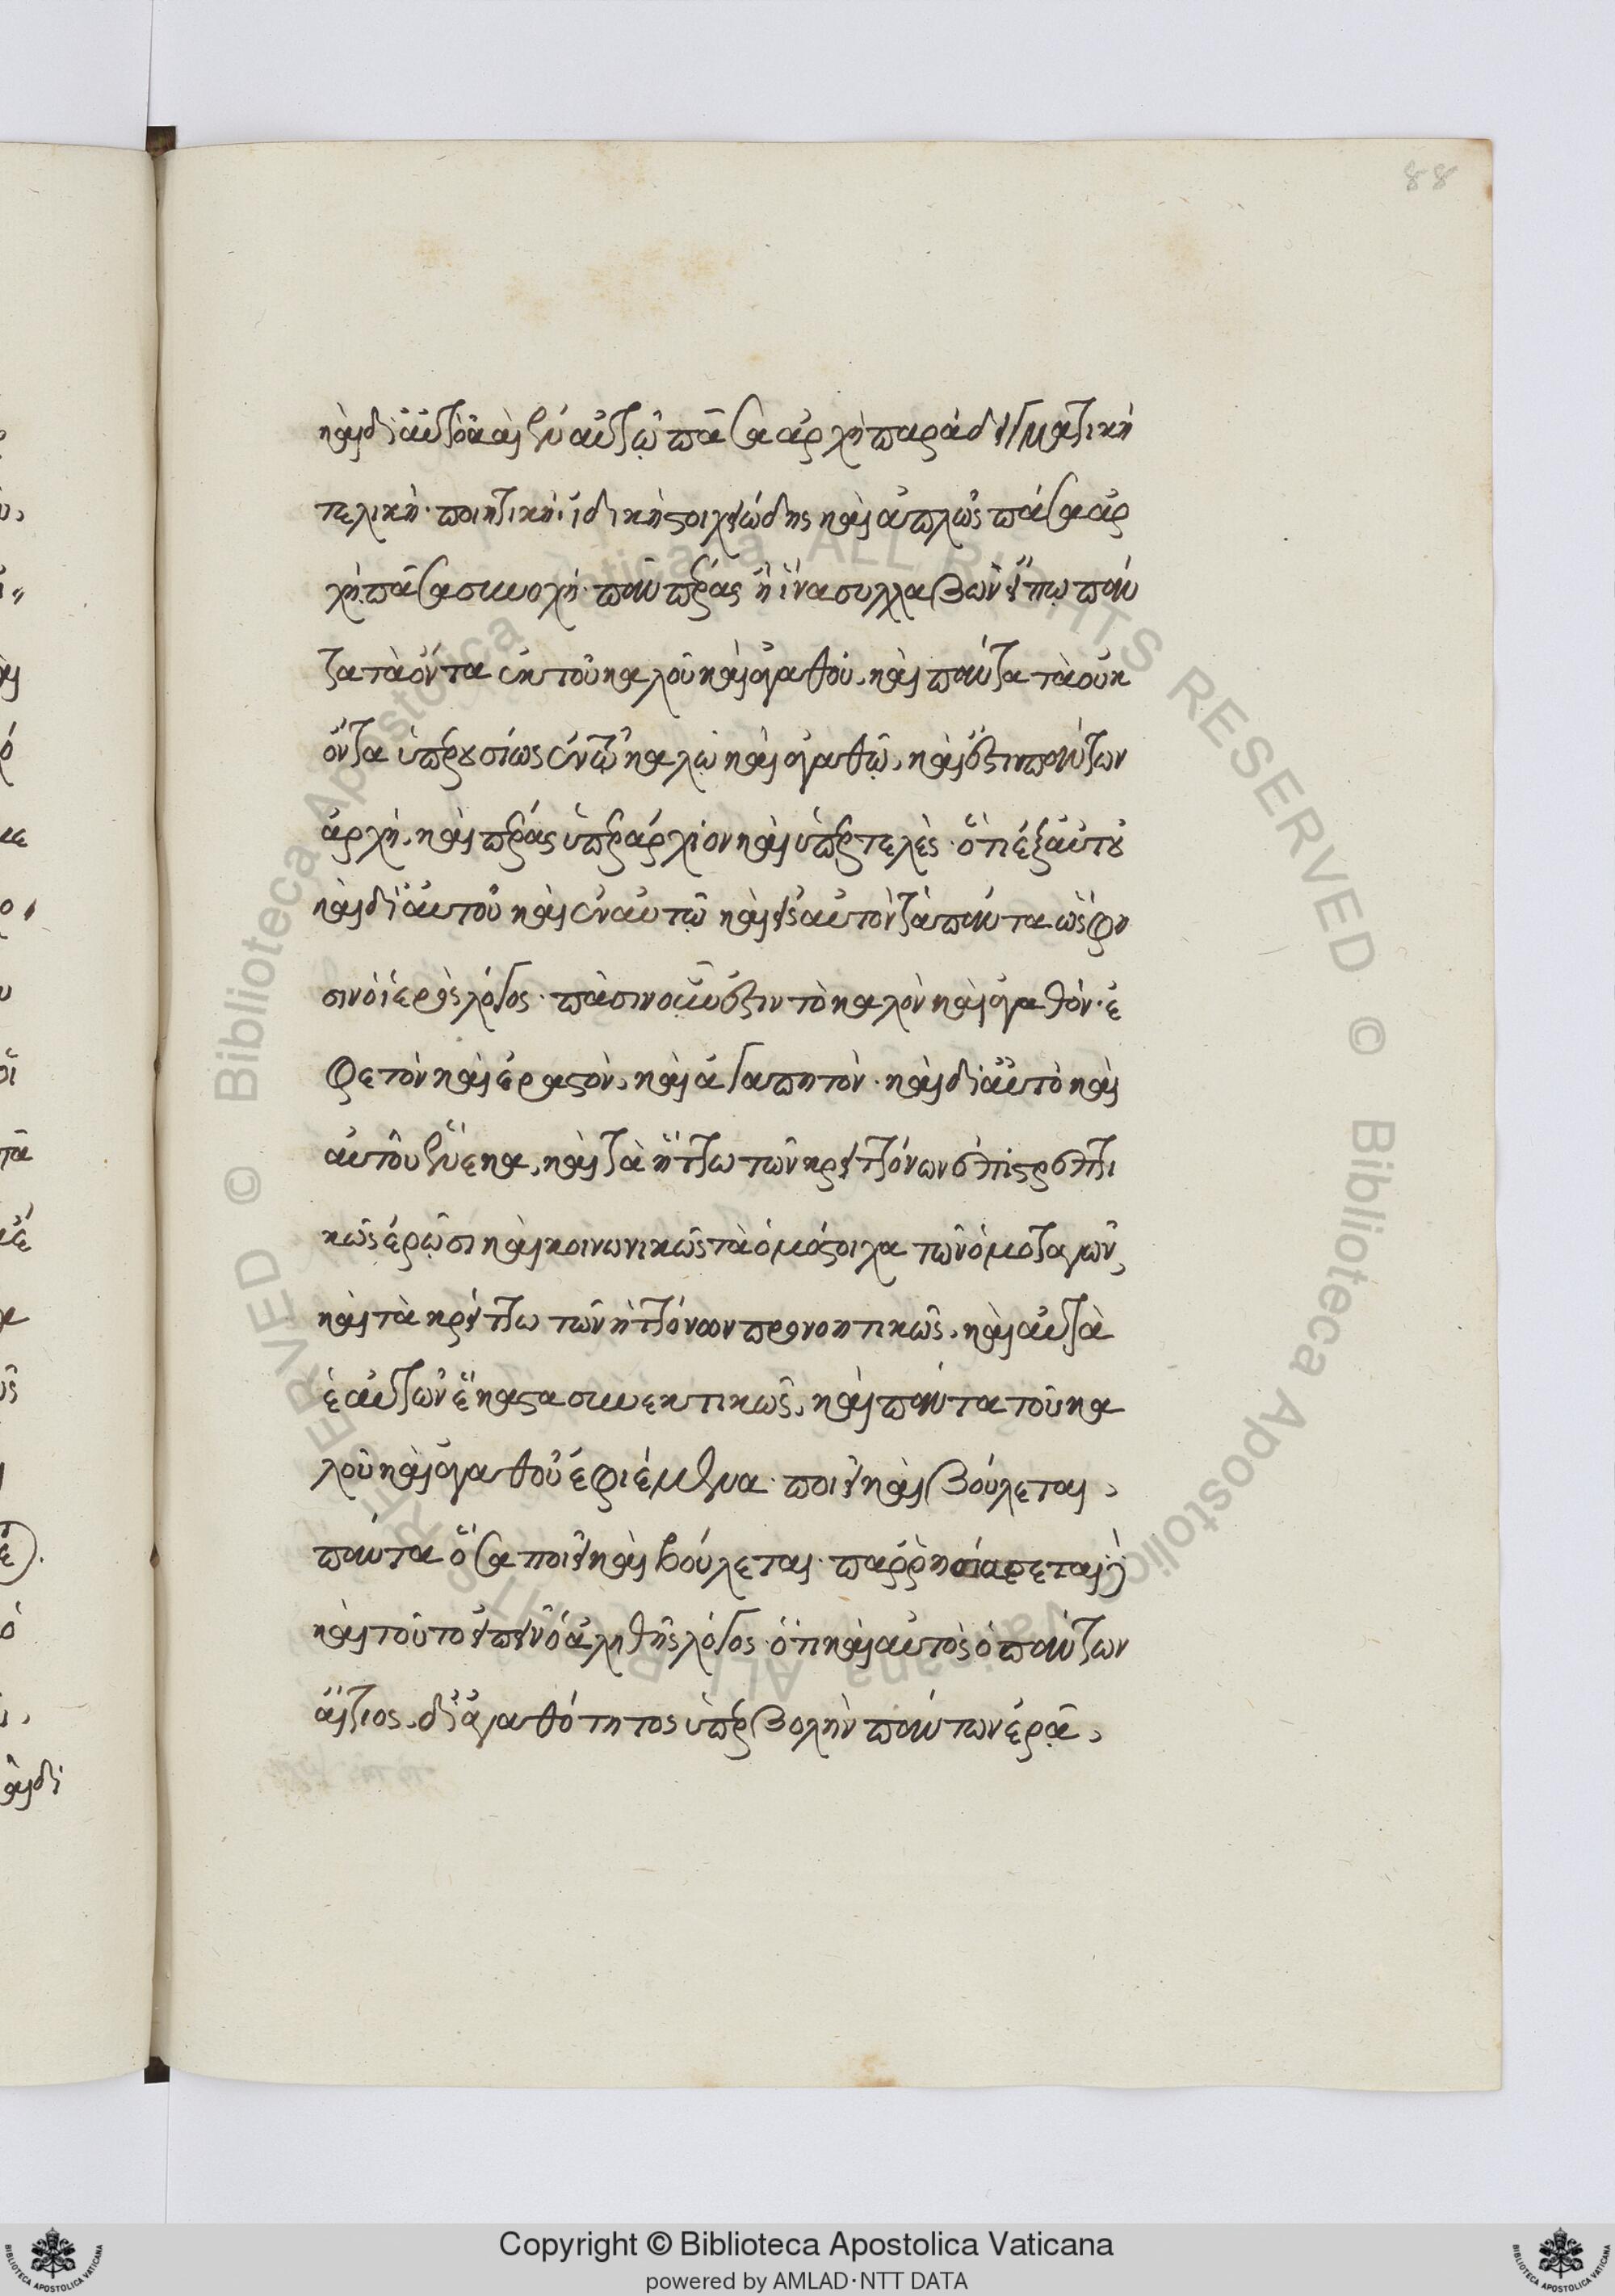 88
καὶ δι' αὐτὸ καὶ ἐν αὐτῷ πᾶσα ἀρχὴ παραδειγματικὴ
τελικὴ· ποιητικὴ· εἰδικὴ στοιχειώδης καὶ ἁπλῶς πᾶσα ἀρ
χὴ πᾶσα συνοχὴ· πᾶν πέρας ἢ ἵνα συλλαβὼν εἴπω πάν
τα τὰ ὄντα ἐκ τοῦ καλοῦ καὶ ἀγαθοῦ, καὶ πάντα τὰ οὐκ
ὄντα ὑπερουσίως ἐν τῷ καλῷ καὶ ἀγαθῷ, καὶ ἔστιν πάντων
ἀρχὴ, καὶ πέρας ὑπεράρχιον καὶ ὑπερτελὲς· ὅτι ἐξ αὐτοῦ
καὶ δι' αὐτοῦ καὶ ἐν αὐτῷ καὶ εἰς αὐτὸν τὰ πάντα ὥς φη
σιν ὁ ἱερὸς λόγος· πᾶσιν οὖν ἔστιν τὸ καλὸν καὶ ἀγαθόν· ἐ
φετὸν καὶ ἐραστὸν, καὶ ἀγαπητόν· καὶ δι' αὐτὸ καὶ
αὐτοῦ ἕνεκα, καὶ τὰ ἥττω τῶν κρειττόνων ἐπιστρεπτι
κῶς ἐρῶσι καὶ κοινωνικῶς τὰ ὁμόστοιχα τῶν ὁμοταγῶν,
καὶ τὰ κρείττω τῶν ἡττόνων προνοητικῶς, καὶ αὐτὰ
ἑαυτῶν ἕκαστα συνεκτικῶς, καὶ πάντα τοῦ κα
λοῦ καὶ ἀγαθοῦ ἐφιέμενα· ποιεῖ καὶ βούλεται,
πάντα ὅσα ποιεῖ καὶ βούλεται· παρρησιάσεται δὲ
καὶ τοῦτο εἰπεῖν ὁ ἀληθὴς λόγος· ὅτι καὶ αὐτὸς ὁ πάντων
αἴτιος, δι' ἀγαθότητος ὑπερβολὴν πάντων ἐρᾷ,
Copyright © Biblioteca Apostolica Vaticana
powered by AMLAD·NTT DATA